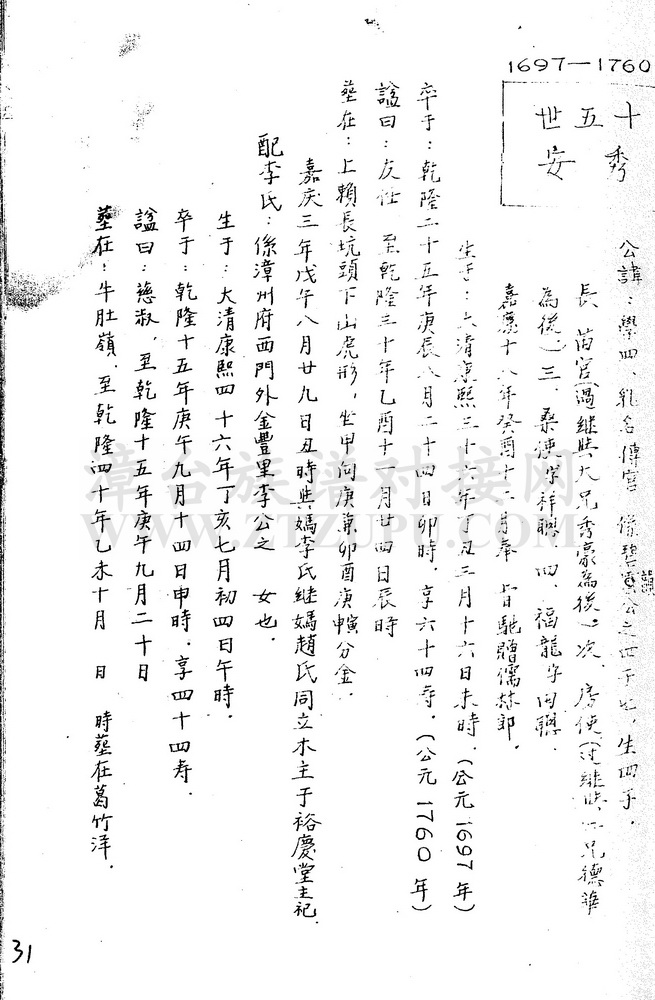 1697—1760
十五世
秀安
公諱：學四、乳名傳宮 係碧 公之四子也，生四子，
長 苗宮(過継與大兄秀豪為後)次、房使(过継與 兄德華
為後)三、桑使字祥聰 四、福龍字因聰．
嘉慶十八年癸酉十二月奉 旨馳贈儒林郎．
生于：大清康熙三十六年丁丑三月十六日未時．(公元1697年)
卒于：乾隆二十五年庚辰八月二十四日卯時．享六十四寿．(公元1760年)
諡曰：友仕 至乾隆三十年乙酉十一月廿四日辰時
塟在：上賴長坑頭下山虎形，坐甲向庚兼卯酉庚 分金．
嘉庆三年戊午八月廿九日丑時與媽李氏継媽趙氏同立木主于裕慶堂主祀．
配李氏：係漳州府西門外金豐里李公之 女也．
生于：大清康熙四十六年丁亥七月初四日午時．
卒于：乾隆十五年庚午九月十四日申時．享四十四寿．
諡曰：慈淑．至乾隆十五年庚午九月二十日
塟在：牛肚嶺．至乾隆四十年乙未十月 日 時塟在葛竹洋．
31
漳台族谱对接网
WWW.ZTZUPU.COM